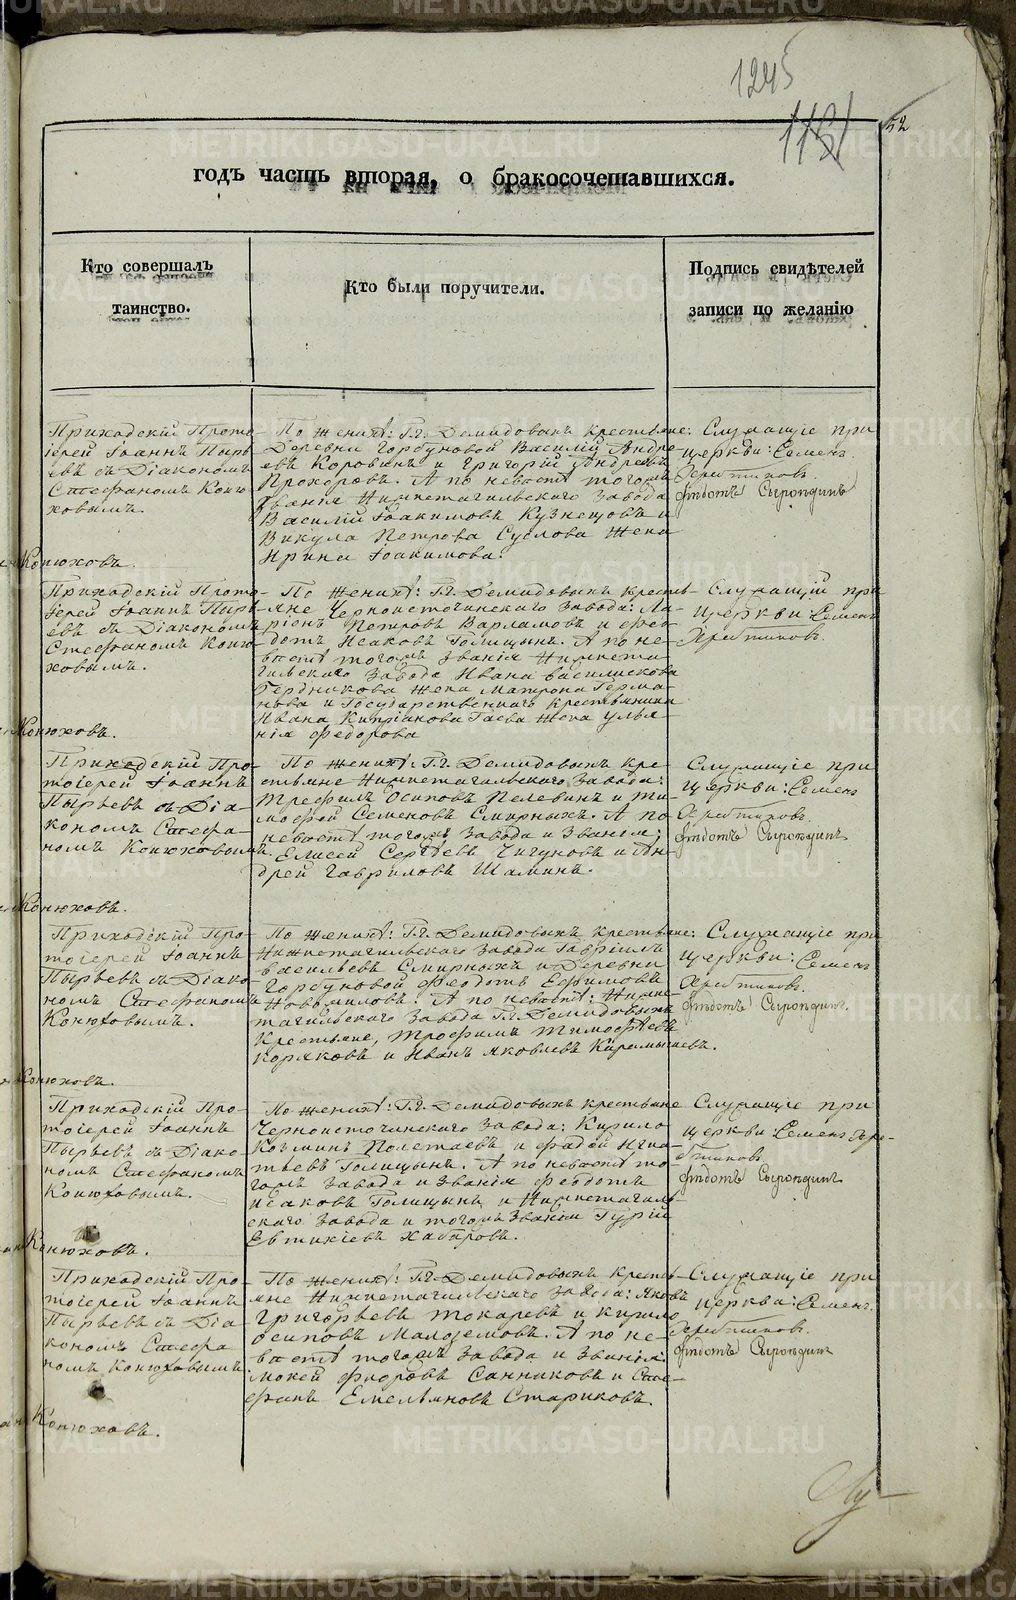 METRIKI.GASO-URAL.RU
1245
115
52
годъ часть вторая, о бракосочетавшихся.
Кто совершалъ
таинство.
Кто были поручители.
Подпись свидѣтелей
записи по желанію
Приходскій Прото-
іерей Іоаннъ Пырь-
евъ съ Діакономъ
Стефаномъ Коню-
ховымъ.
По женихѣ: Г.г. Демидовыхъ крестьяне:
Деревни Горбуновой Василій Андре-
евъ Коровинъ и Григорій Андреевъ
Прохоровъ. А по невѣстѣ того жъ
званія Нижнетагильскаго завода
Василій Іоакимовъ Кузнецовъ и
Викула Петрова Суслова жена
Ирина Іоакимова.
Служащіе при
церкви: Семенъ
Ѳедотъ Сыропдинъ
Конюховъ.
Приходскій Прото-
іерей Іоаннъ Пырь-
евъ съ Діакономъ
Стефаномъ Коню-
ховымъ.
По женихѣ: Г.г. Демидовыхъ кресть-
яне Черноисточинскаго завода: Ла-
ріонъ Петровъ Варламовъ и Ѳео-
дотъ Исаковъ Голицынъ. А по не-
вѣстѣ того жъ званія Нижнета-
гильскаго завода Ивана Василискова
Бердникова жена Матрона Герма-
нова и Государственнаго крестьянина
Ивана Кипріанова Гаева жена Улья-
нія Федорова
Служащій при
церкви: Семенъ
Конюховъ.
Приходскій Про-
тоіерей Іоаннъ
Пырьевъ съ Діа-
кономъ Стефа-
номъ Конюховымъ.
По женихѣ: Г.г. Демидовыхъ кре-
стьяне Нижнетагильскаго завода:
Трофимъ Осиповъ Пелевинъ и Ти-
мофей Семеновъ Смирныхъ. А по
невѣстѣ того жъ завода и званія;
Елисей Сергѣевъ Чигуновъ и Ан-
дрей Гавриловъ Шаминъ.
Служащіе при
церкви: Семенъ
Ѳедотъ Сыропдинъ
Конюховъ.
Приходскій Про-
тоіерей Іоаннъ
Пырьевъ съ Діако-
номъ Стефаномъ
Конюховымъ.
По женихѣ: Г.г. Демидовыхъ крестьяне:
Нижнетагильскаго завода Гавріилъ
Васильевъ Смирныхъ и Деревни
Горбуновой Ѳеодотъ Ефимовъ
А по невѣстѣ: Нижне-
тагильскаго завода Г.г. Демидовыхъ
крестьяне, Трофимъ Тимофѣевъ
Коряковъ и Иванъ Яковлевъ
Служащіе при
церкви: Семенъ
Ѳедотъ Сыропдинъ
Конюховъ.
Приходскій Про-
тоіерей Іоаннъ
Пырьевъ съ Діако-
номъ Стефаномъ
Конюховымъ.
По женихѣ: Г.г. Демидовыхъ крестьяне
Черноисточинскаго завода: Кирило
Козминъ Полетаевъ и Фадей Игна-
тьевъ Голицынъ. А по невѣстѣ то-
гожъ завода и званія Ѳеодотъ
Исаковъ Голицынъ и Нижнетагиль-
скаго завода и того жъ званія Гурій
Евтихіевъ Хабаровъ.
Служащіе при
церкви: Семенъ
Ѳедотъ Сыропдинъ
Конюховъ.
Приходскій Про-
тоіерей Іоаннъ
Пырьевъ съ Діа-
кономъ Стефа
номъ Конюховымъ
По женихѣ: Г.г. Демидовыхъ кресть-
яне Нижнетагильскаго завода: Яковъ
Григорьевъ Токаревъ и Кирило
Осиповъ Малоземовъ. А по не-
вѣстѣ того жъ завода и званія:
Мокей Федоровъ Санниковъ и Сте-
фанъ Емельяновъ Стариковъ.
Служащіе при
церкви: Семенъ
Ѳедотъ Сыропдинъ
Конюховъ.